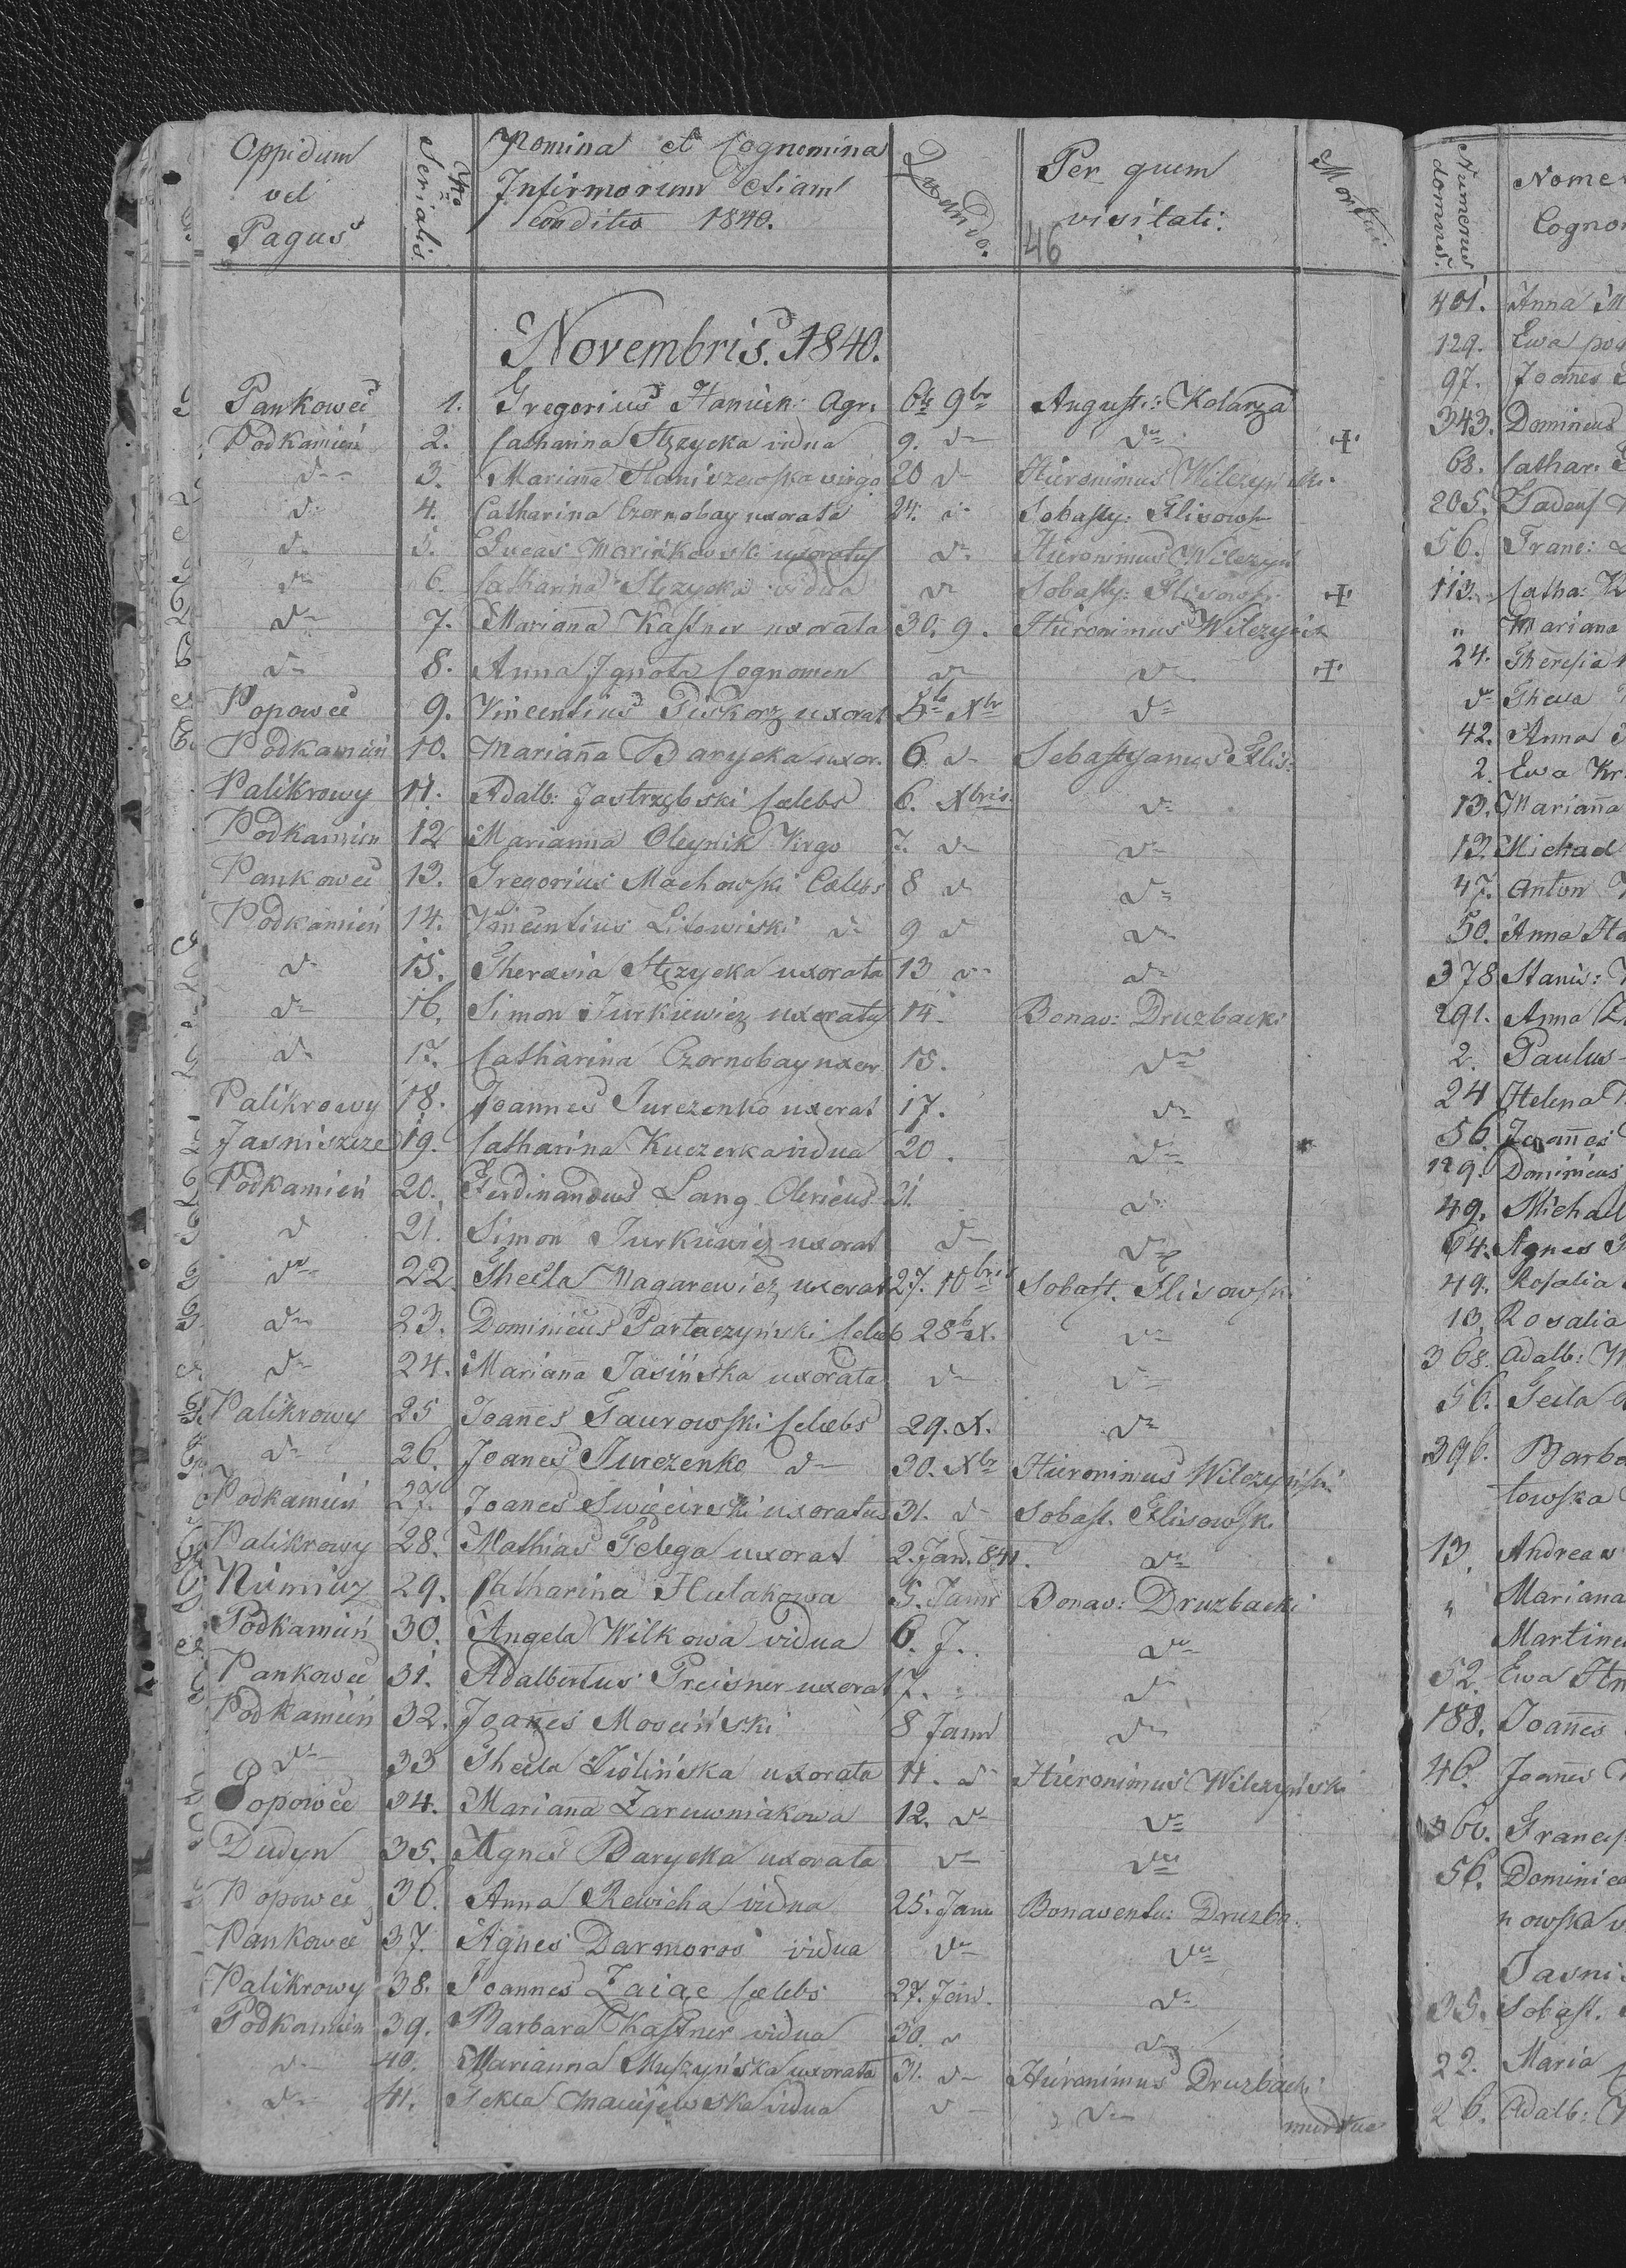 Oppidum vel Pagus
Nro Serialis
Nomina et Cognomina Infirmorum etiam Conditio 1840.
Quando.
Per quem visitati:
46
Mortui
Numerus domus.
Novembris. 1840.
Pankowce 1. Gregorius Agr. 6ta 9br August: Kolarza
Podkamień 2. Catharina Stęzycka vidua 9. d d +
d 3. Marianna Staniszewska virgo 20 d Hieronimus Wilczyński
d 4. Catharina Czornobay uxorata 24. d Sobasty: Flisows
d 5. Lucas Marinkowski uxoratus d Hieronimus Wilczyń
d 6. Catharina Stęzycka vidua d Sobasty: Flisows +
d 7. Mariana Kastner uxorata 30. 9. Hieronimus Wilczyńs
d 8. Anna Ignota Cognomen d d +
Popowce 9. Vincentius Piskorz uxorat 5ta Xbr d
Podkamień 10. Mariana Barycka uxor. 6 d Sebastyanus Flis:
Palikrowy 11. Adalb: Jastrzębski Celebs 6. Xbris d
Podkamien 12 Marianna Oleynik Virgo 7. d d
Pankowce 13. Gregorius Machowski Celebs 8 d d
Podkamień 14. Vincentius Litowiski d 9 d d
d 15. Theresia Stęzycka uxorata 13 d d
d 16. Simon Jurkiewicz uxoratus 14. Bonav: Druzbacki
d 17. Catharina Czornobay uxor. 15. d
Palikrowy 18. Joannes Jurczenko uxorat 17. d
Jasniszcze 19. Catharina Kuczerka vidua 20. d
Podkamień 20. Ferdinandus Lang Clericus 21. d
d 21. Simon Jurkiewicz uxorat d d
d 22. Thecla Magarewicz uxorat 27. 10bris Sobast. Flisowski
d 23. Dominicus Partaczyński Celeb 28 X. d
d 24. Mariana Jasińska uxorata d d
Palikrowy 25 Joanes Taurowski Celebs 29. X. d
d 26. Joanes Jurczenko d 30. Xbr Hieronimus Wilczyński
Podkamień 27. Joanes Swięcirski uxoratus 31. d Sobast. Flisowski
Palikrowy 28. Mathias Pelega uxorat 2. Jan. 841. d
29. Catharina Hulakowa 5. Janr Bonav: Druzbacki
Podkamień 30. Angela Wilkowa vidua 6. J. d
Pankowce 31. Adalbertus Preisner uxorat 7. d
Podkamień 32. Joanes Mosciński 8 Janr d
d 33 Thecla Violińska uxorata 11. d Hieronimus Wilczyński
Popowce 34. Mariana Zaruwniakowa 12. d d
Dudyn 35. Agnes Barycka uxorata d d
Popowce 36. Anna Rewicha vidua 25. Janu Bonaventu: Druzba.
Pankowce 37. Agnes Darmoros vidua d d
Palikrowy 38. Joannes Zaiąc Celebs 27. Jan. d
Podkamien 39. Barbara Kastner vidua 30. d d
d 40. Marianna Muszyńska uxorata 31. d Hieronimus Druzbacki
d 41. Tekla Maciejewska vidua d d murtua
401. Anna
129. Ewa
97. Joanes
343. Dominicus
68. Cathar:
205. Tadeus
56. Franc:
113. Catha: K
" Mariana
24. Theresia
d Thecla
42. Anna
2. Ewa Kr
13. Mariana
12. Michael
47. Anton
50. Anna
378 Stanis:
291. Anna
2. Paulus
24 Helena
56. Joanes
129. Dominicus
49. Michael
64. Agnes
49. Rosalia
13. Rosalia
368. Adalb:
56. Tecla
396. Barba
towska
13. Andreas
" Mariana
Martinu
52. Ewa
188. Joannes
46. Joannes
360. Francis
56. Dominica
nowska v
Jasni
35. Sobast.
22. Maria
26. Adalb: